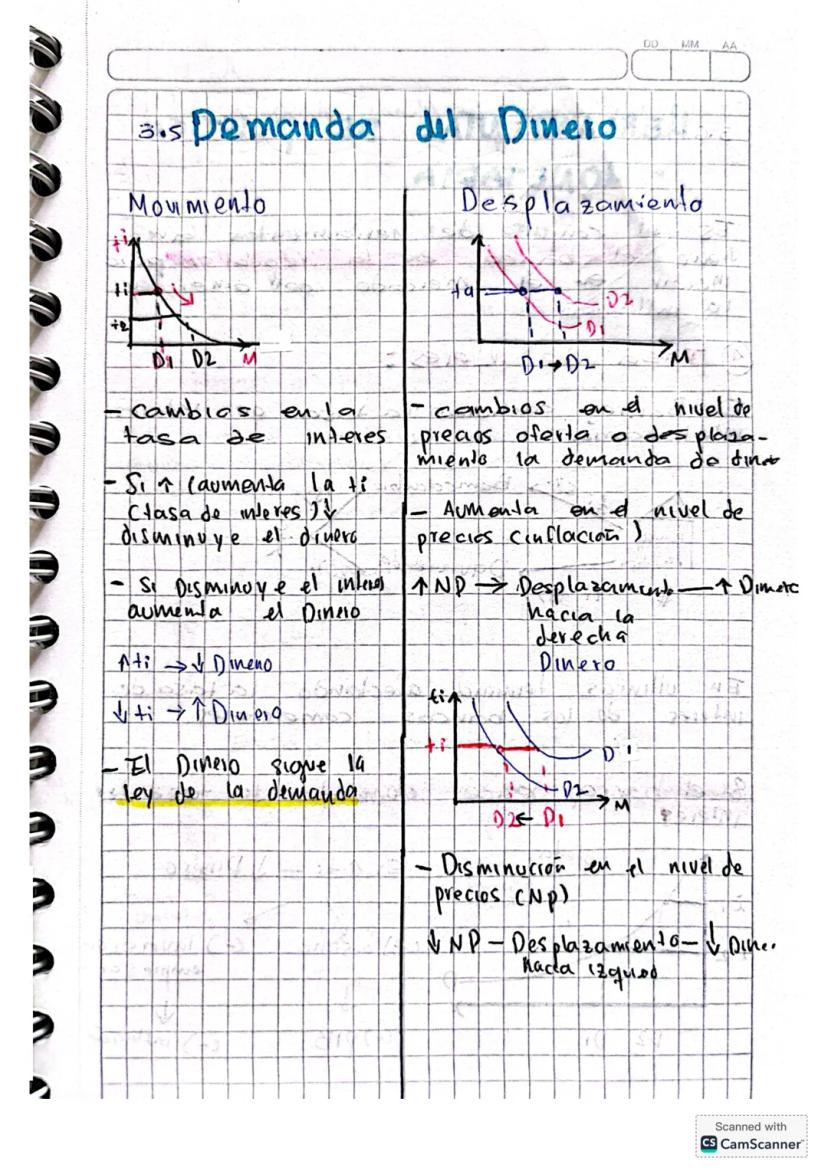 DD MM AA
3.5 Demanda del Dinero
Movimiento
ti
ti
t2
D1 D2 M
- cambios en la
tasa de interes
- Si ↑ (aumenta la ti
(tasa de interes) ↓
disminuye el dinero
- Si Disminuye el interes
aumenta el Dinero
↑ ti → ↓ Dineno
↓ ti → ↑ Dinero
- El Dinero sigue la
ley de la demanda
Desplazamiento
ta
D2
D1
D1 → D2
M
- cambios en el nivel de
precios oferta o desplaza-
miento la demanda de
- Aumenta en el nivel de
precios (inflación)
↑ NP → Desplazamiento — ↑ Dinero
hacia la
derecha
Dinero
ti
ti
D1
D2
M
D2 ← D1
- Disminución en el nivel de
precios (Np)
↓ NP - Desplazamiento - ↓ Dine
hacia
Scanned with
CS CamScanner